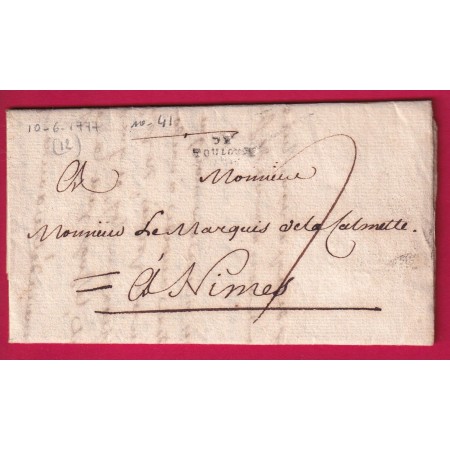 10-6-1777
(12)
no-41
DE
A Monsieur
Monsieur Le Marquis de la Calmette.
= A Nimes